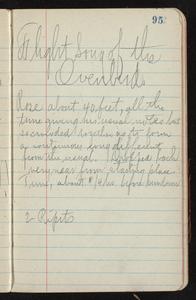 95
Flight Song of the
Ovenbird.
Rose about 40 feet, all the
time giving his usual notes but
so crowded together as to form
a continuous song different
from the usual. Dropped back
very near from starting place.
Time, about 1/4 hr. before sundown
2 Pipits